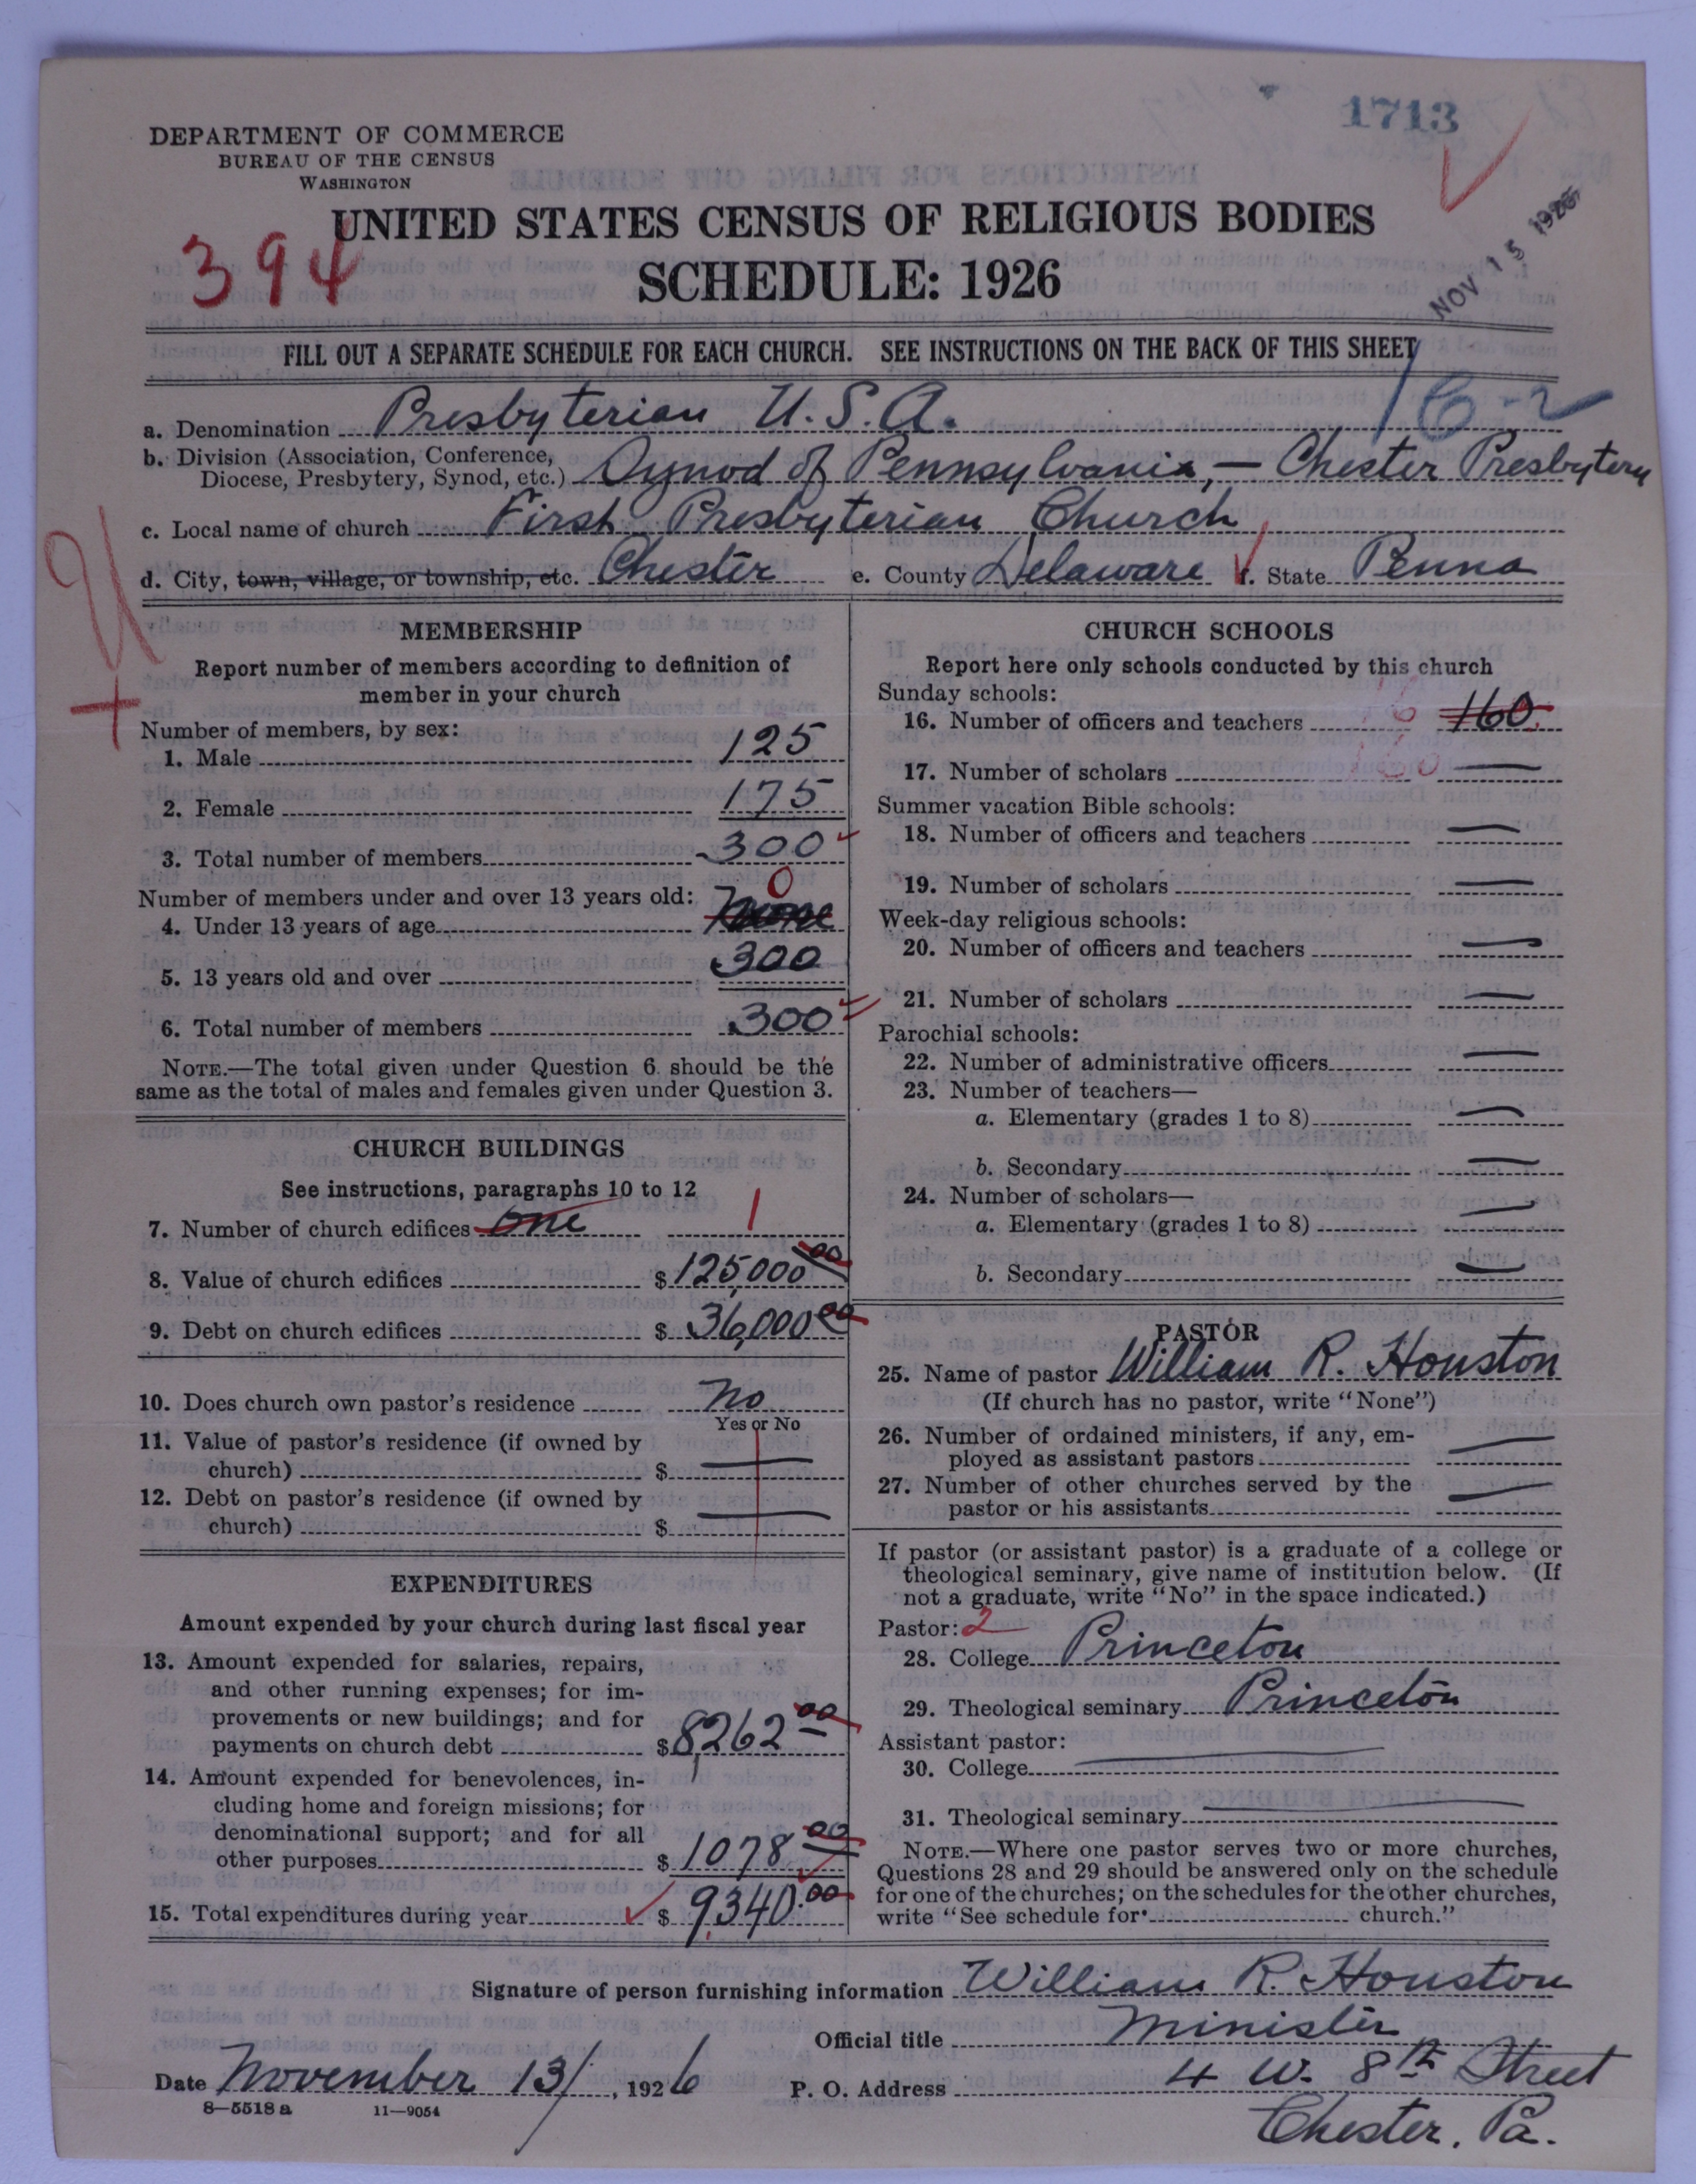 1713
DEPARTMENT OF COMMERCE
BUREAU OF THE CENSUS
WASHINGTON
UNITED STATES CENSUS OF RELIGIOUS BODIES
394
SCHEDULE: 1926
NOV 15 1926
FILL OUT A SEPARATE SCHEDULE FOR EACH CHURCH. SEE INSTRUCTIONS ON THE BACK OF THIS SHEET
a. Denomination Presbyterian U.S.A.
b. Division (Association, Conference,
Diocese, Presbytery, Synod, etc.) Synod of Pennsylvania, — Chester Presbytery
c. Local name of church First Presbyterian Church
d. City, town, village, or township, etc. Chester e. County Delaware f. State Penna
MEMBERSHIP
Report number of members according to definition of
member in your church
Number of members, by sex:
1. Male 125
2. Female 175
3. Total number of members 300
Number of members under and over 13 years old: 0
4. Under 13 years of age None
5. 13 years old and over 300
6. Total number of members 300
NOTE.—The total given under Question 6 should be the
same as the total of males and females given under Question 3.
CHURCH BUILDINGS
See instructions, paragraphs 10 to 12
7. Number of church edifices One 1
8. Value of church edifices $125,000 00
9. Debt on church edifices $36,000 00
10. Does church own pastor's residence No
Yes or No
11. Value of pastor's residence (if owned by
church) $ —
12. Debt on pastor's residence (if owned by
church) $ —
EXPENDITURES
Amount expended by your church during last fiscal year
13. Amount expended for salaries, repairs,
and other running expenses; for im-
provements or new buildings; and for
payments on church debt $8,262 00
14. Amount expended for benevolences, in-
cluding home and foreign missions; for
denominational support; and for all
other purposes $1078 00
15. Total expenditures during year $9340.00
CHURCH SCHOOLS
Report here only schools conducted by this church
Sunday schools:
16. Number of officers and teachers 160
17. Number of scholars —
Summer vacation Bible schools:
18. Number of officers and teachers —
19. Number of scholars —
Week-day religious schools:
20. Number of officers and teachers —
21. Number of scholars —
Parochial schools:
22. Number of administrative officers —
23. Number of teachers—
a. Elementary (grades 1 to 8) —
b. Secondary —
24. Number of scholars—
a. Elementary (grades 1 to 8) —
b. Secondary —
PASTOR
25. Name of pastor William R. Houston
(If church has no pastor, write "None")
26. Number of ordained ministers, if any, em-
ployed as assistant pastors —
27. Number of other churches served by the
pastor or his assistants —
If pastor (or assistant pastor) is a graduate of a college or
theological seminary, give name of institution below. (If
not a graduate, write "No" in the space indicated.)
Pastor: 2
28. College Princeton
29. Theological seminary Princeton
Assistant pastor:
30. College —
31. Theological seminary —
NOTE.—Where one pastor serves two or more churches,
Questions 28 and 29 should be answered only on the schedule
for one of the churches; on the schedules for the other churches,
write "See schedule for church."
Signature of person furnishing information William R. Houston
Official title Minister
Date November 13/, 1926 P. O. Address 4 W. 8th Street
8—5518a 11—9054
Chester, Pa.